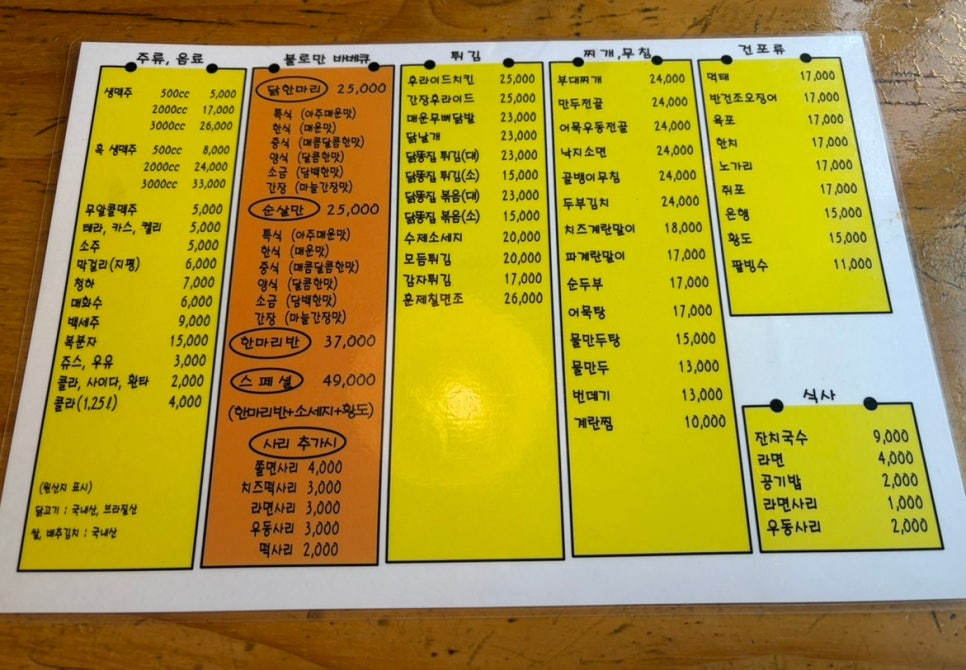 주류, 음료
생맥주 500cc 5,000
2000cc 17,000
3000cc 26,000
흑 생맥주 500cc 8,000
2000cc 24,000
3000cc 33,000
무알콜맥주 5,000
테라, 카스, 켈리 5,000
소주 5,000
막걸리(지평) 6,000
청하 7,000
매화수 6,000
백세주 9,000
복분자 15,000
쥬스, 우유 3,000
콜라, 사이다, 환타 2,000
콜라(1,25ℓ) 4,000
(원산지 표시)
닭고기 : 국내산, 브라질산
쌀, 배추김치 : 국내산
불로만 바베큐
닭한마리 25,000
특식 (아주매운맛)
한식 (매운맛)
중식 (매콤달콤한맛)
양식 (달콤한맛)
소금 (담백한맛)
간장 (마늘간장맛)
순살만 25,000
특식 (아주매운맛)
한식 (매운맛)
중식 (매콤달콤한맛)
양식 (달콤한맛)
소금 (담백한맛)
간장 (마늘간장맛)
한마리반 37,000
스페셜 49,000
(한마리반+소세지+황도)
사리 추가시
쫄면사리 4,000
치즈떡사리 3,000
라면사리 3,000
우동사리 3,000
떡사리 2,000
튀김
후라이드치킨 25,000
간장후라이드 25,000
매운무뼈닭발 23,000
닭날개 23,000
닭똥집 튀김(대) 23,000
닭똥집 튀김(소) 15,000
닭똥집 볶음(대) 23,000
닭똥집 볶음(소) 15,000
수제소세지 20,000
모듬튀김 20,000
감자튀김 17,000
훈제칠면조 26,000
찌개,무침
부대찌개 24,000
만두전골 24,000
어묵우동전골 24,000
낙지소면 24,000
골뱅이무침 24,000
두부김치 24,000
치즈계란말이 18,000
파계란말이 17,000
순두부 17,000
어묵탕 17,000
물만두탕 15,000
물만두 13,000
번데기 13,000
계란찜 10,000
건포류
먹태 17,000
반건조오징어 17,000
육포 17,000
한치 17,000
노가리 17,000
쥐포 17,000
은행 15,000
황도 15,000
팥빙수 11,000
식사
잔치국수 9,000
라면 4,000
공기밥 2,000
라면사리 1,000
우동사리 2,000